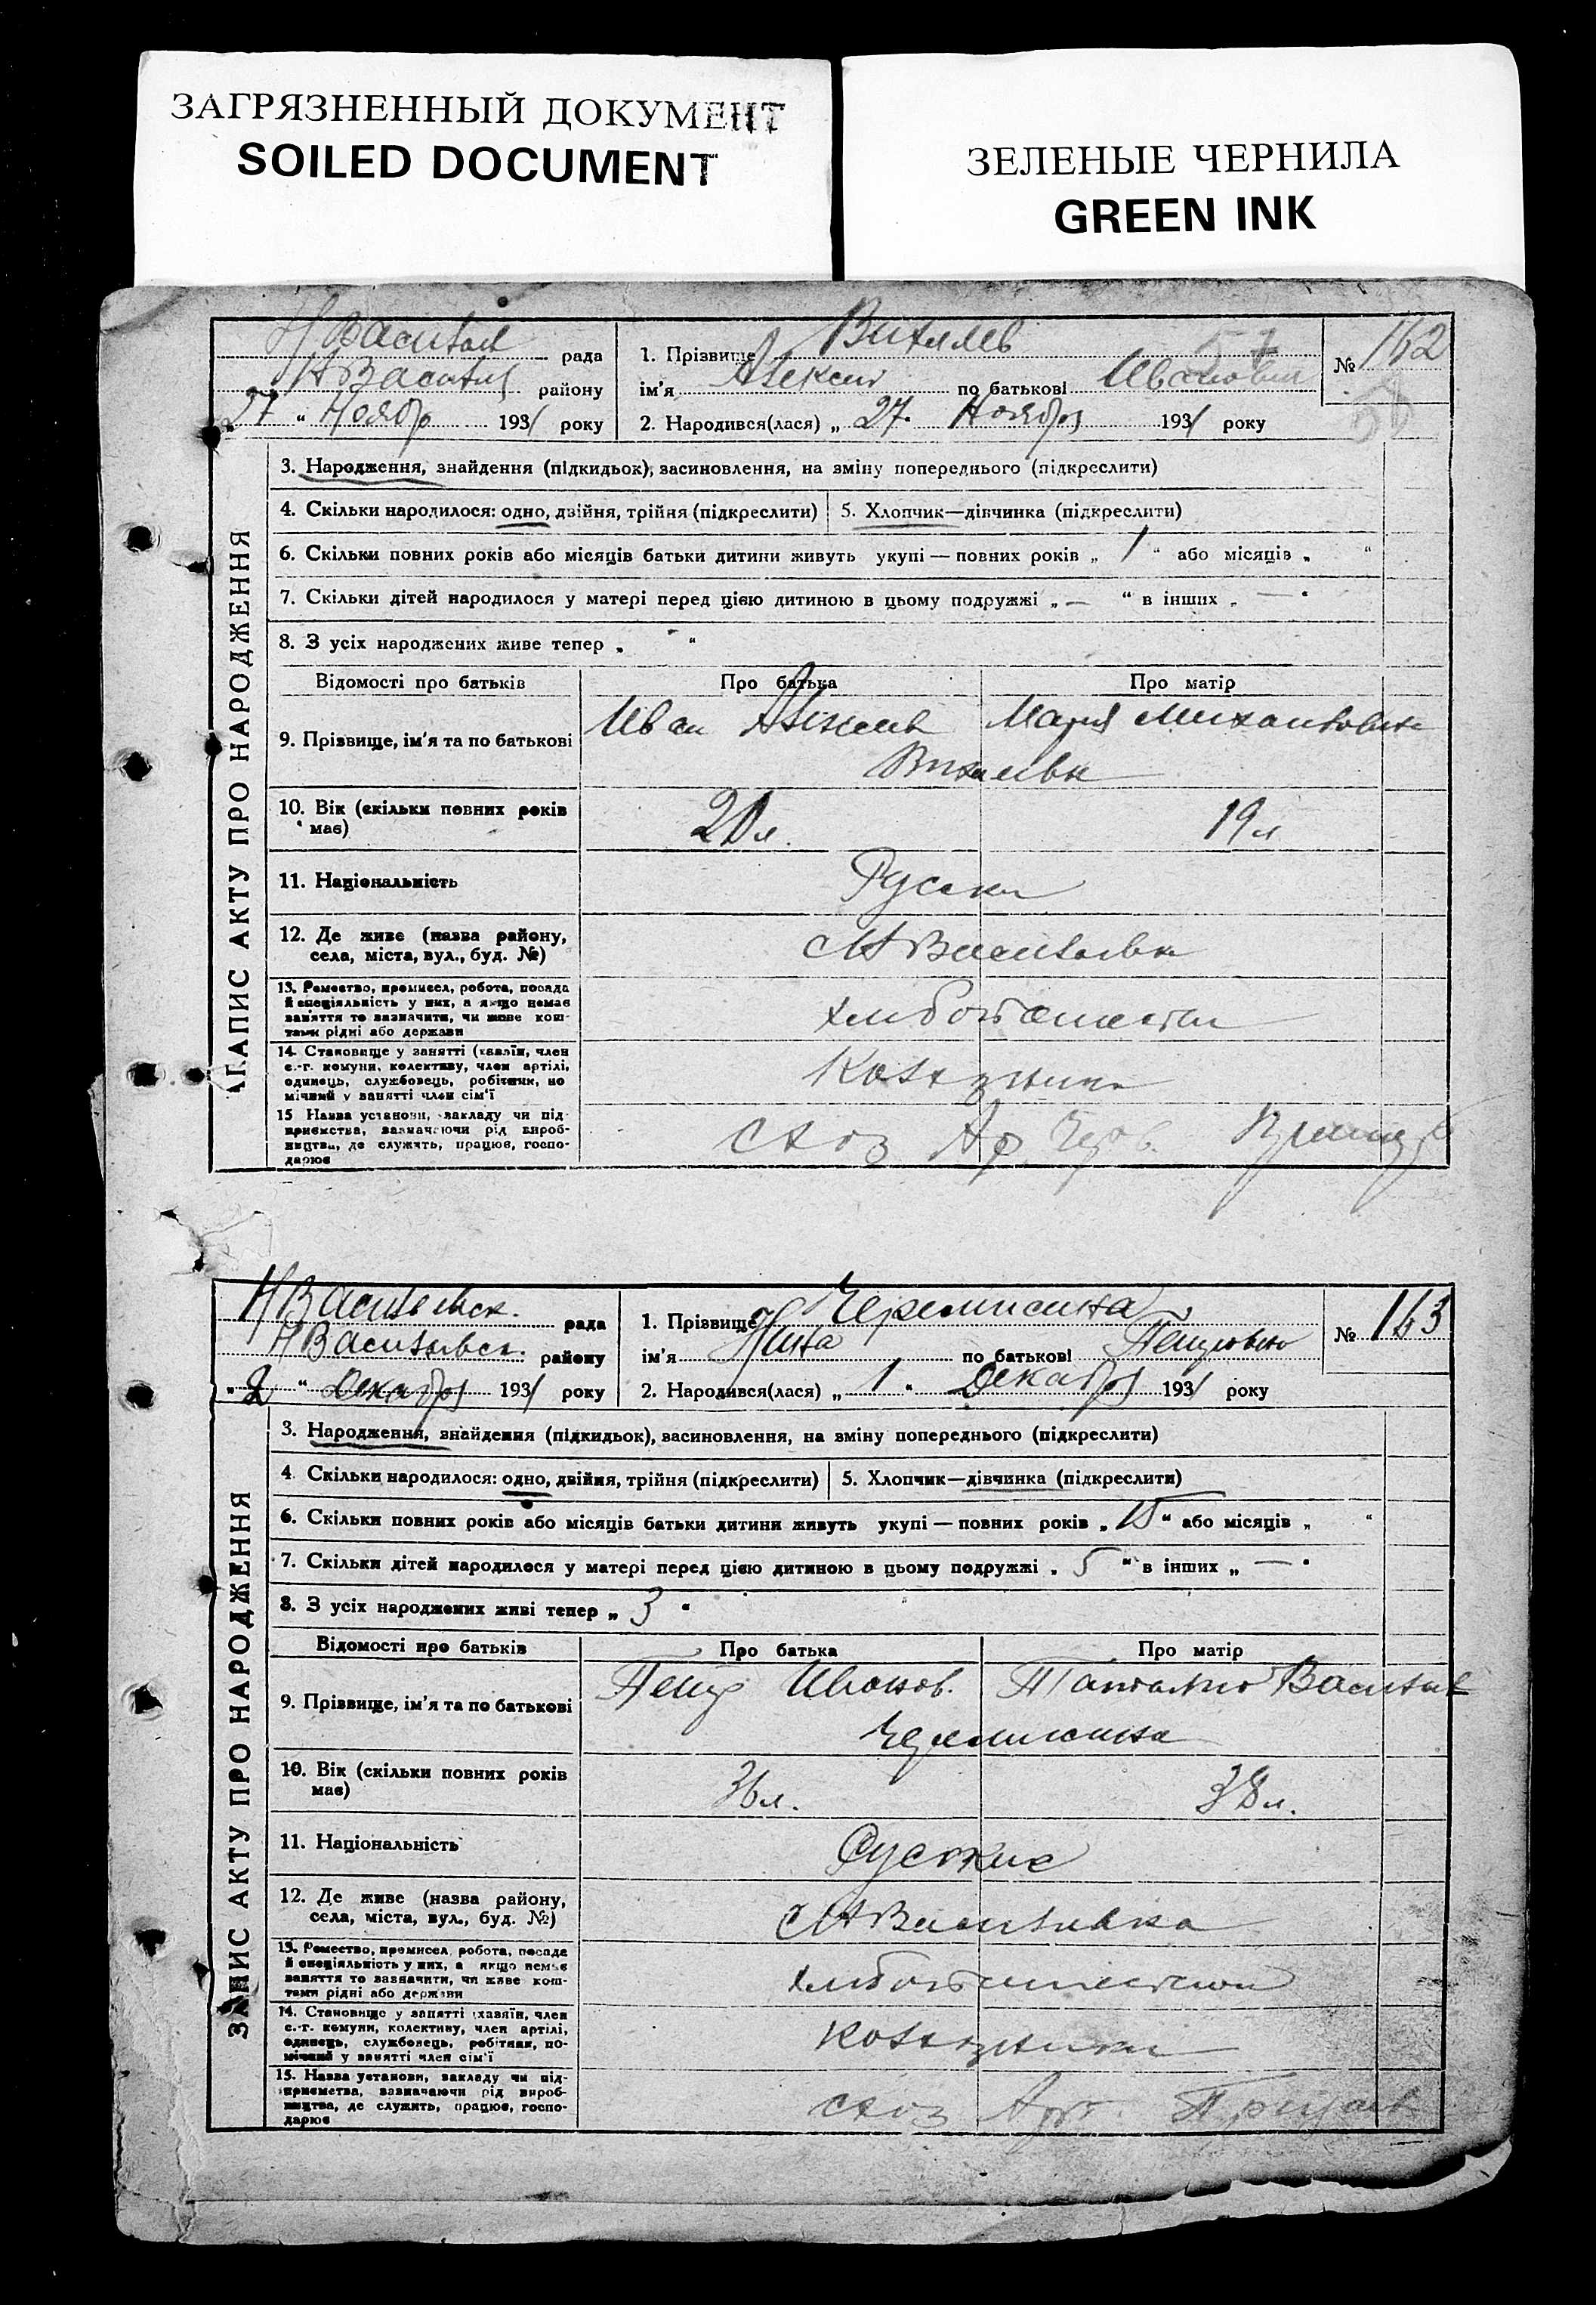 ЗАГРЯЗНЕННЫЙ ДОКУМЕНТ
SOILED DOCUMENT
ЗЕЛЕНЫЕ ЧЕРНИЛА
GREEN INK
ЗАПИС АКТУ ПРО НАРОДЖЕННЯ
рада
району
„27 “ Ноябр 1931 року
1. Прізвище
ім'я Алексей по батькові Иванович
2. Народився(лася) „ 27. Ноября 1931 року
№ 162
57
58
3. Народження, знайдення (підкидьок), засиновлення, на зміну попереднього (підкреслити)
4. Скільки народилося: одно, двійня, трійня (підкреслити)
5. Хлопчик—дівчинка (підкреслити)
6. Скільки повних років або місяців батьки дитини живуть укупі — повних років „ 1 “ або місяців „ “
7. Скільки дітей народилося у матері перед цією дитиною в цьому подружжі „ — “ в інших „ — “
8. З усіх народжених живе тепер „ “
Відомості про батьків
Про батька
Про матір
9. Прізвище, ім'я та по батькові
Иван
Мария
10. Вік (скільки повних років має)
20 л.
19 л
11. Національність
Русски
12. Де живе (назва району,
села, міста, вул., буд. №)
13. Ремество, промисел, робота, посада
й спеціяльність у них, а якщо немає
заняття то вазначити, чи живе кош-
тами рідні або держави
14. Становище у занятті (хазяїн, член
с.-г. комуни, колективу, член артілі,
одинець, службовець, робітник, по
мічний у занятті член сім'ї
Колхозники
15 Назва установи, закладу чи під-
приємства, зазначаючи рід вироб-
ництва, де служить, працює, госпо-
дарює
схоз Ар.
ЗАПИС АКТУ ПРО НАРОДЖЕННЯ
Н Васильевск. рада
Н Васильевск. району
„ 2 “ Декабря 1931 року
1. Прізвище Черемисина
ім'я Нина по батькові Петровна
2. Народився(лася) „ 1 “ Декабря 1931 року
№ 163
3. Народження, знайдення (підкидьок), засиновлення, на зміну попереднього (підкреслити)
4. Скільки народилося: одно, двійня, трійня (підкреслити)
5. Хлопчик—дівчинка (підкреслити)
6. Скільки повних років або місяців батьки дитини живуть укупі — повних років „ 15 “ або місяців „ “
7. Скільки дітей народилося у матері перед цією дитиною в цьому подружжі „ 5 “ в інших „ — “
8. З усіх народжених живі тепер „ 3 “
Відомості про батьків
Про батька
Про матір
9. Прізвище, ім'я та по батькові
Петр Иванов.
Черемисина
10. Вік (скільки повних років
має)
36 л.
38 л.
11. Національність
Русские
12. Де живе (назва району,
села, міста, вул., буд. №)
С Н Васильевка
13. Ремество, промисел, робота, посада
й спеціяльність у них, а якщо немає
заняття то вазначити, чи живе кош-
тами рідні або держави
14. Становище у занятті (хазяїн, член
с.-г. комуни, колективу, член артілі,
одинець, службовець, робітник, по-
мічний у занятті член сім'ї
Колхозники
15. Назва установи, закладу чи під-
приємства, зазначаючи рід вироб-
ництва, де служить, працює, госпо-
дарює
схоз Арт.